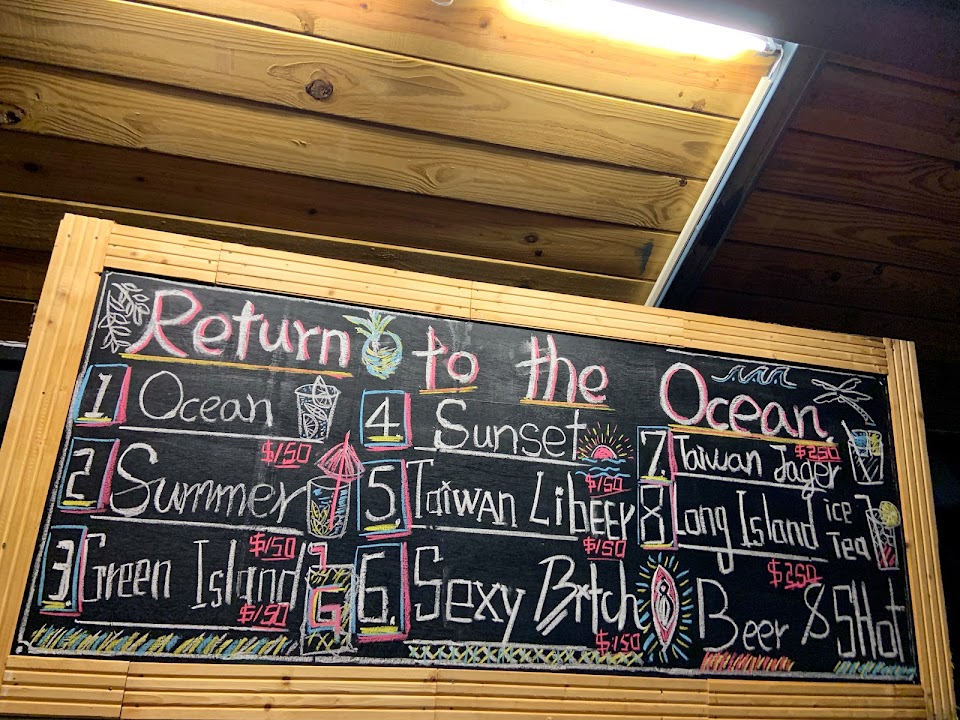 Return to the Ocean
1 Ocean
$150
2 Summer
$150
3. Green Island
$150
4 Sunset
$150
5. Taiwan LibEER
$150
6. Sexy B*tch
$150
7. Taiwan Jager
$250
8 Long Island ice Tea
$250
Beer & SHot